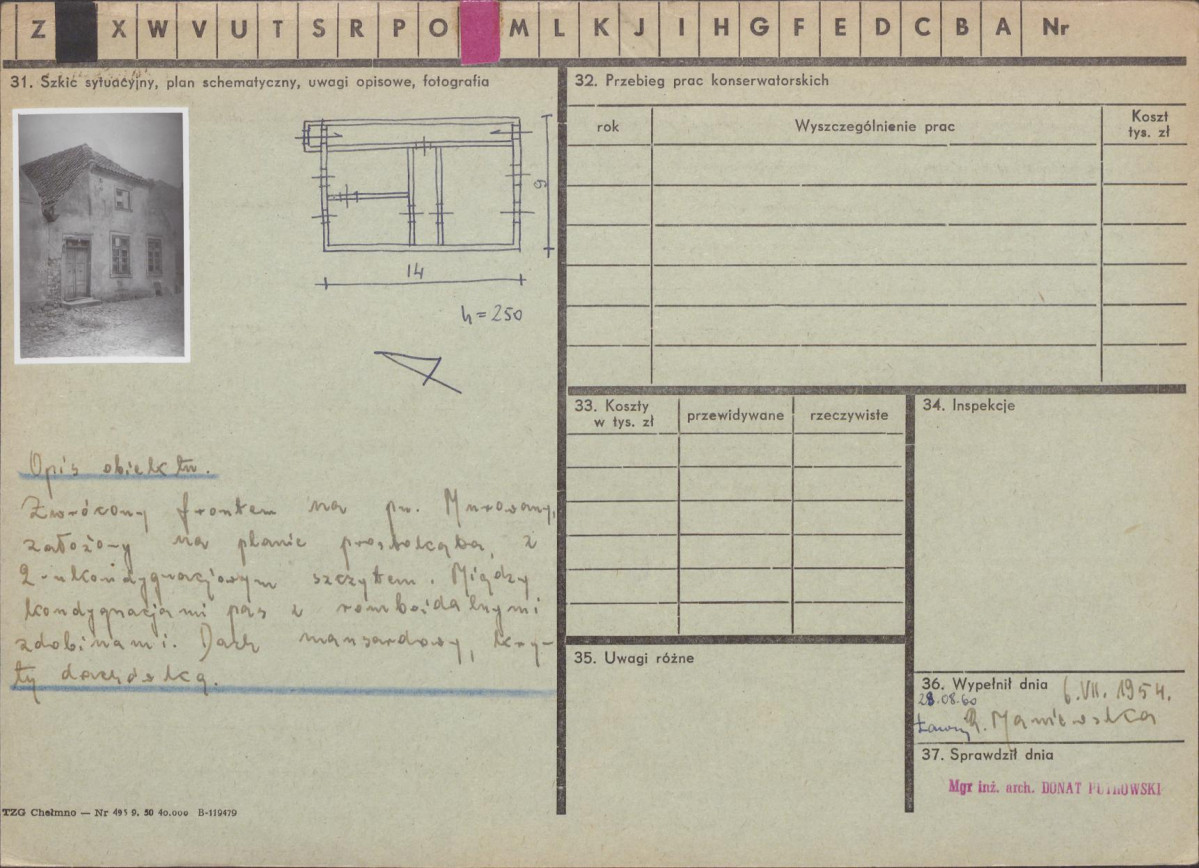 Z X W V U T S R P O M L K J I H G F E D C B A Nr
31. Szkic sytuacyjny, plan schematyczny, uwagi opisowe, fotografia
9
14
h = 250
Opis obiektu.
Zwrócony frontem na pn. Murowany,
założony na planie prostokąta, z
2-ukondygnacjowym szczytem. Między
kondygnacjami pas z romboidalnymi
zdobinami. Dach mansardowy, kry-
ty dachówką.
TZG Chełmno — Nr 495 9. 50 40.000 B-119479
32. Przebieg prac konserwatorskich
rok Wyszczególnienie prac Koszt
tys. zł
33. Koszty
w tys. zł
przewidywane rzeczywiste
34. Inspekcje
35. Uwagi różne
36. Wypełnił dnia 6.VII. 1954.
28.08.60
R. Maniewska
37. Sprawdził dnia
Mgr inż. arch. DONAT